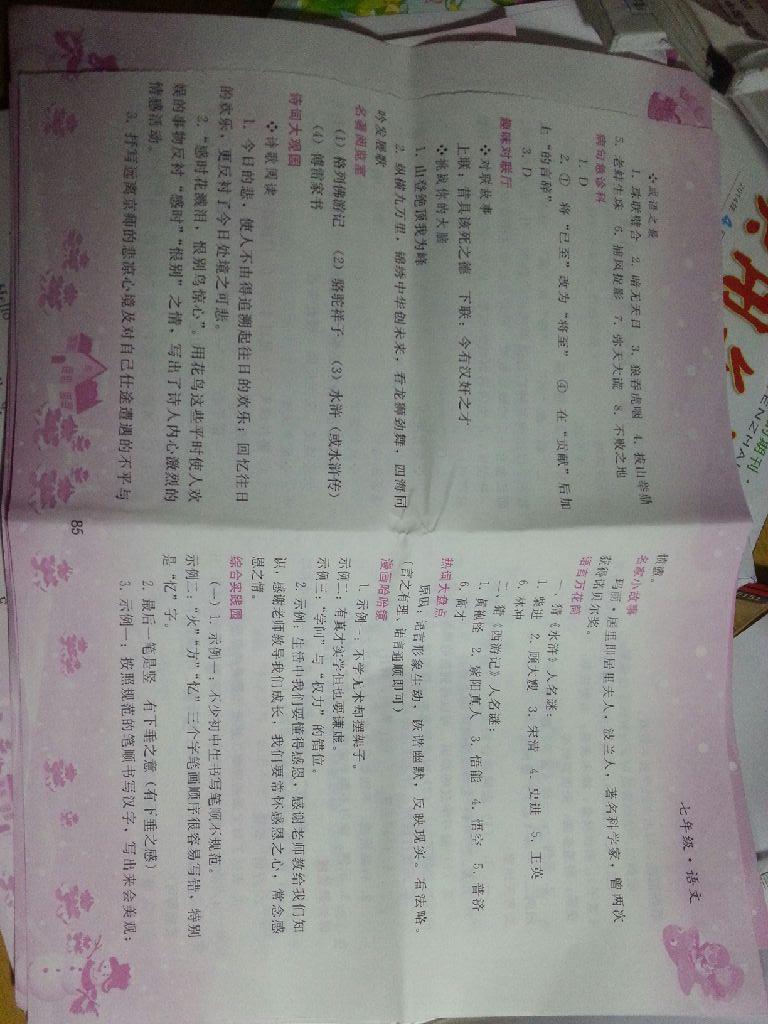 七年级·语文
❖成语之最
1. 珠联璧合 2. 暗无天日 3. 狼吞虎咽 4. 拔山举鼎
5. 老蚌生珠 6. 捕风捉影 7. 弥天大谎 8. 不败之地
病句急诊科
1. D
2. ① 将“已至”改为“将至” ④ 在“贡献”后加
上“的言辞”
3. D
趣味对联厅
❖对联故事
上联：昔具该死之德 下联：今有汉奸之才
❖挑战你的大脑
1. 山登绝顶我为峰
2. 纵横九万里，锦绣中华创未来，看龙狮劲舞，四海同
吟发展歌
名著阅览室
(1) 格列佛游记 (2) 骆驼祥子 (3) 水浒（或水浒传）
(4) 傅雷家书
诗词大观园
❖诗歌阅读
1. 今日的悲，使人不由得追溯起往日的欢乐；回忆往日
的欢乐，更反衬了今日处境之可悲。
2. “感时花溅泪，恨别鸟惊心”。用花鸟这些平时使人欢
娱的事物反衬“感时”“恨别”之情，写出了诗人内心激烈的
情感活动。
3. 抒写远离京师的悲凉心境及对自己仕途遭遇的不平与
愤懑。
名家小故事
玛丽·居里即居里夫人，波兰人，著名科学家，曾两次
获得诺贝尔奖。
语言万花筒
一、猜《水浒》人名谜：
1. 柴进 2. 顾大嫂 3. 宋清 4. 史进 5. 王英
6. 林冲
二、猜《西游记》人名谜：
1. 黄袍怪 2. 紫阳真人 3. 悟能 4. 悟空 5. 普济
6. 高才
热词大盘点
原因：语言形象生动，诙谐幽默，反映现实。看法略。
（言之有理、语言通顺即可）
漫画哈哈镜
1. 示例一：不学无术却摆架子。
示例二：有真才实学但也要谦虚。
示例三：“学问”与“权力”的错位。
2. 示例：生活中我们要懂得感恩，感谢老师教给我们知
识，感谢老师教导我们成长，我们要常怀感恩之心，常念感
恩之情。
综合实践园
（一）1. 示例一：不少初中生书写笔顺不规范。
示例二：“火”“方”“忆”三个字笔画顺序很容易写错，特别
是“忆”字。
2. 最后一笔是竖 有下垂之意（有下垂之感）
3. 示例一：按照规范的笔顺书写汉字，写出来会美观；
85